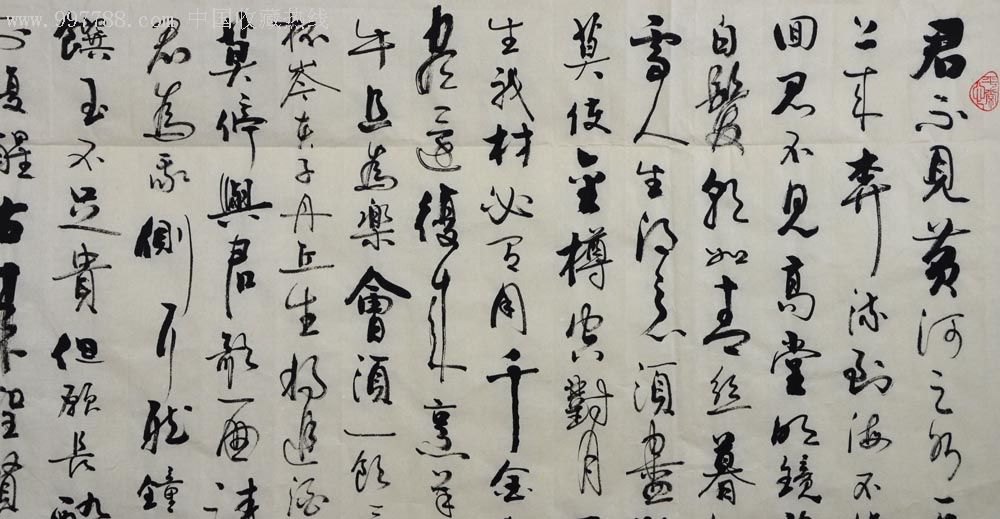 www.997788.com 中国收藏热线
君不見黄河之水
上来奔流到海不
回君不見高堂明鏡
白髮朝如青絲暮
雪人生得意須盡
莫使金樽空對月
生我材必有用千金
盡還復来烹羊
牛且為樂會須一飲三
杯岑夫子丹丘生將進酒
莫停與君歌一曲請
君為我側耳聽鐘
饌玉不足貴但願長醉
不复醒古来聖賢